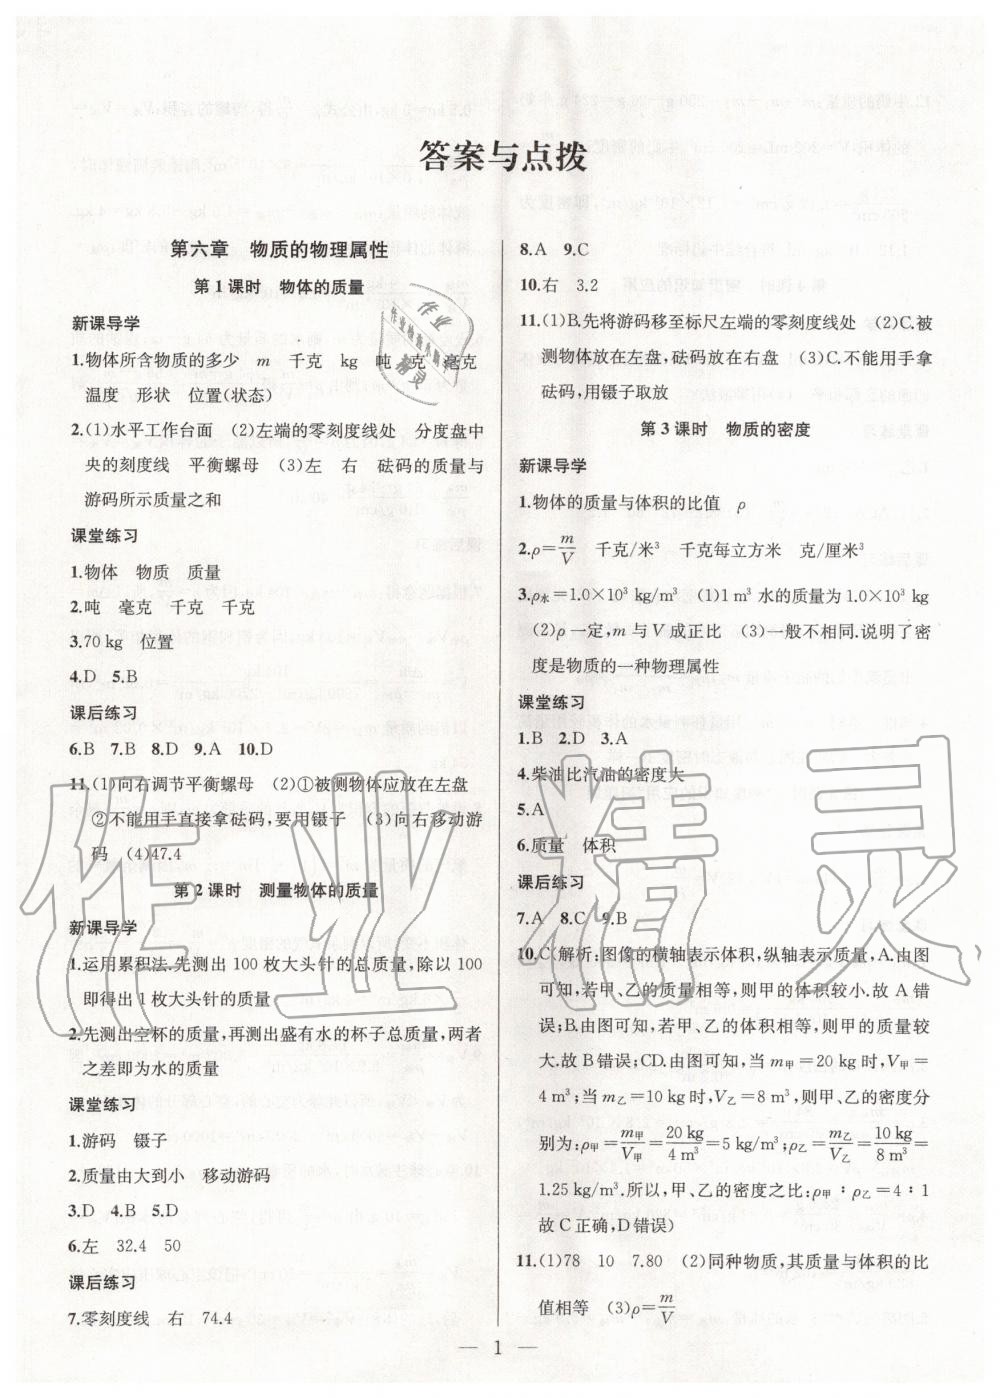 答案与点拨
第六章 物质的物理属性
第1课时 物体的质量
新课导学
1.物体所含物质的多少 m 千克 kg 吨 克 毫克
温度 形状 位置(状态)
2.(1)水平工作台面 (2)左端的零刻度线处 分度盘中
央的刻度线 平衡螺母 (3)左 右 砝码的质量与
游码所示质量之和
课堂练习
1.物体 物质 质量
2.吨 毫克 千克 千克
3.70 kg 位置
4.D 5.B
课后练习
6.B 7.B 8.D 9.A 10.D
11.(1)向右调节平衡螺母 (2)①被测物体应放在左盘
②不能用手直接拿砝码,要用镊子 (3)向右移动游
码 (4)47.4
第2课时 测量物体的质量
新课导学
1.运用累积法.先测出100枚大头针的总质量,除以100
即得出1枚大头针的质量
2.先测出空杯的质量,再测出盛有水的杯子总质量,两者
之差即为水的质量
课堂练习
1.游码 镊子
2.质量由大到小 移动游码
3.D 4.B 5.D
6.左 32.4 50
课后练习
7.零刻度线 右 74.4
8.A 9.C
10.右 3.2
11.(1)B.先将游码移至标尺左端的零刻度线处 (2)C.被
测物体放在左盘,砝码放在右盘 (3)C.不能用手拿
砝码,用镊子取放
第3课时 物质的密度
新课导学
1.物体的质量与体积的比值 ρ
2.ρ=m/V 千克/米³ 千克每立方米 克/厘米³
3.ρ水=1.0×10³ kg/m³ (1)1 m³ 水的质量为1.0×10³ kg
(2)ρ一定,m与V成正比 (3)一般不相同.说明了密
度是物质的一种物理属性
课堂练习
1.B 2.D 3.A
4.柴油比汽油的密度大
5.A
6.质量 体积
课后练习
7.A 8.C 9.B
10.C(解析:图像的横轴表示体积,纵轴表示质量,A.由图
可知,若甲、乙的质量相等,则甲的体积较小.故A错
误;B.由图可知,若甲、乙的体积相等,则甲的质量较
大.故B错误;CD.由图可知,当m甲=20 kg时,V甲=
4 m³;当m乙=10 kg时,V乙=8 m³,则甲、乙的密度分
别为:ρ甲=m甲/V甲=20 kg/4 m³=5 kg/m³;ρ乙=m乙/V乙=10 kg/8 m³=
1.25 kg/m³.所以,甲、乙的密度之比:ρ甲∶ρ乙=4∶1
故C正确,D错误)
11.(1)78 10 7.80 (2)同种物质,其质量与体积的比
值相等 (3)ρ=m/V
— 1 —
作业精灵
作业
作业检查小助手
精灵